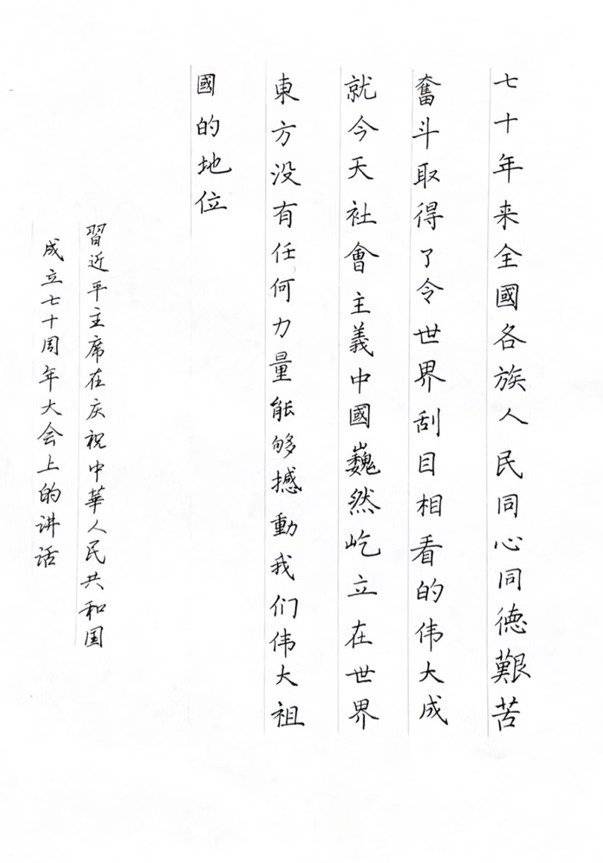 七十年来全國各族人民同心同德艱苦
奮斗取得了令世界刮目相看的伟大成
就今天社會主義中國巍然屹立在世界
東方没有任何力量能够撼動我们伟大祖
國的地位
習近平主席在庆祝中華人民共和国
成立七十周年大会上的讲话